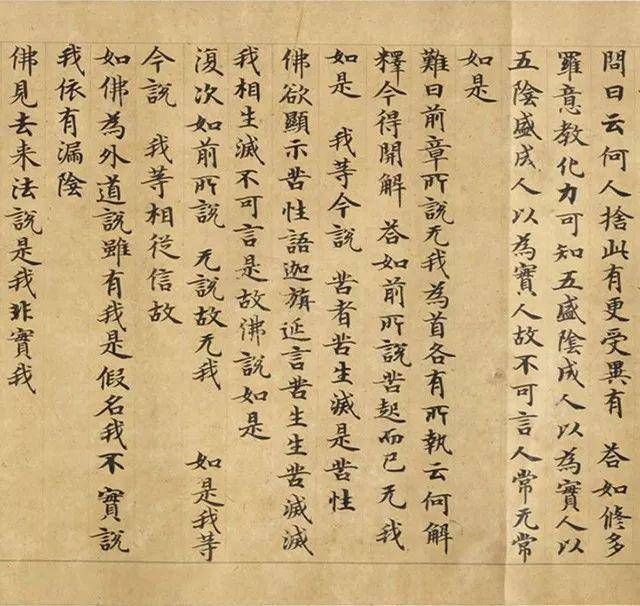 問曰云何人捨此有更受異有 荅如修多
羅意教化力可知五盛陰成人以為實人以
五陰盛成人以為實人故不可言人常无常
如是
難曰前章所說无我為首各有所執云何解
釋今得開解 荅如前所說苦起而已无我
如是 我等今說 苦者苦生滅是苦性
佛欲顯示苦性語迦旃延言苦生生苦滅滅
我相生滅不可言是故佛說如是
復次如前所說 无說故无我 如是我等
今說 我等相從信故
如佛為外道說雖有我是假名我不實說
我依有漏陰
佛見去来法說是我非實我